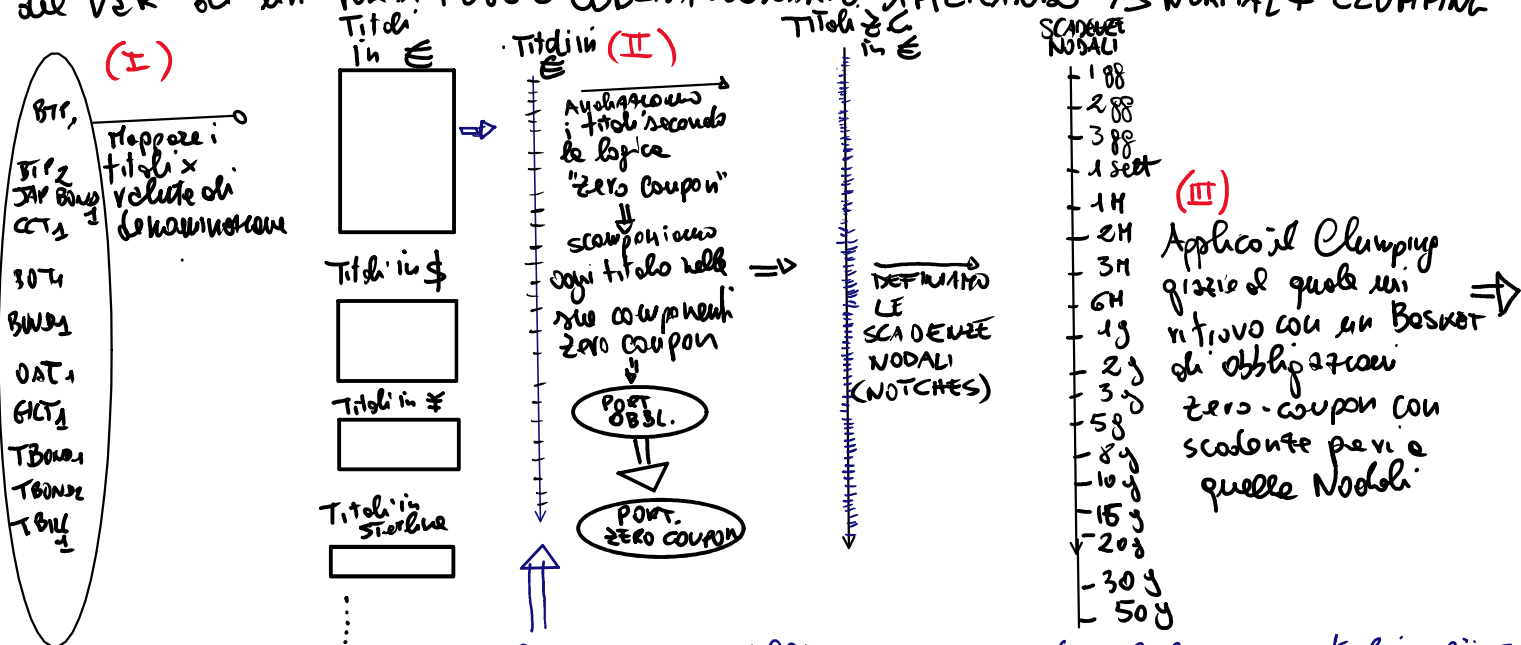 del VaR di un PORTAFOGLIO OBBLIGAZIONARIO APPLICANDO Δ NORMAL + CLUMPING
(I)
BTP1
BTP2
JAP BOND1
CCT1
BOT1
BUND1
OAT1
GILT1
TBOND1
TBOND2
TBILL1
Mappare i
titoli x
valute di
denominazione
Titoli
in €
Titoli in $
Titoli in ¥
Titoli in
sterline
Titoli in
€
(II)
Analizziamo
i titoli secondo
la logica
"zero coupon"
scomponiamo
ogni titolo nelle
sue componenti
zero coupon
PORT
OBBL.
PORT.
ZERO COUPON
Titoli Z.C.
in €
DEFINIAMO
LE
SCADENZE
NODALI
(NOTCHES)
SCADENZE
NODALI
1 gg
2 gg
3 gg
1 sett
1M
2M
3M
6M
1y
2y
3y
5y
8y
10y
15y
20y
30y
50y
(III)
Applico il Clumping
grazie al quale mi
ritrovo con un BASKET
di obbligazioni
zero-coupon con
scadenze pari a
quelle Nodali